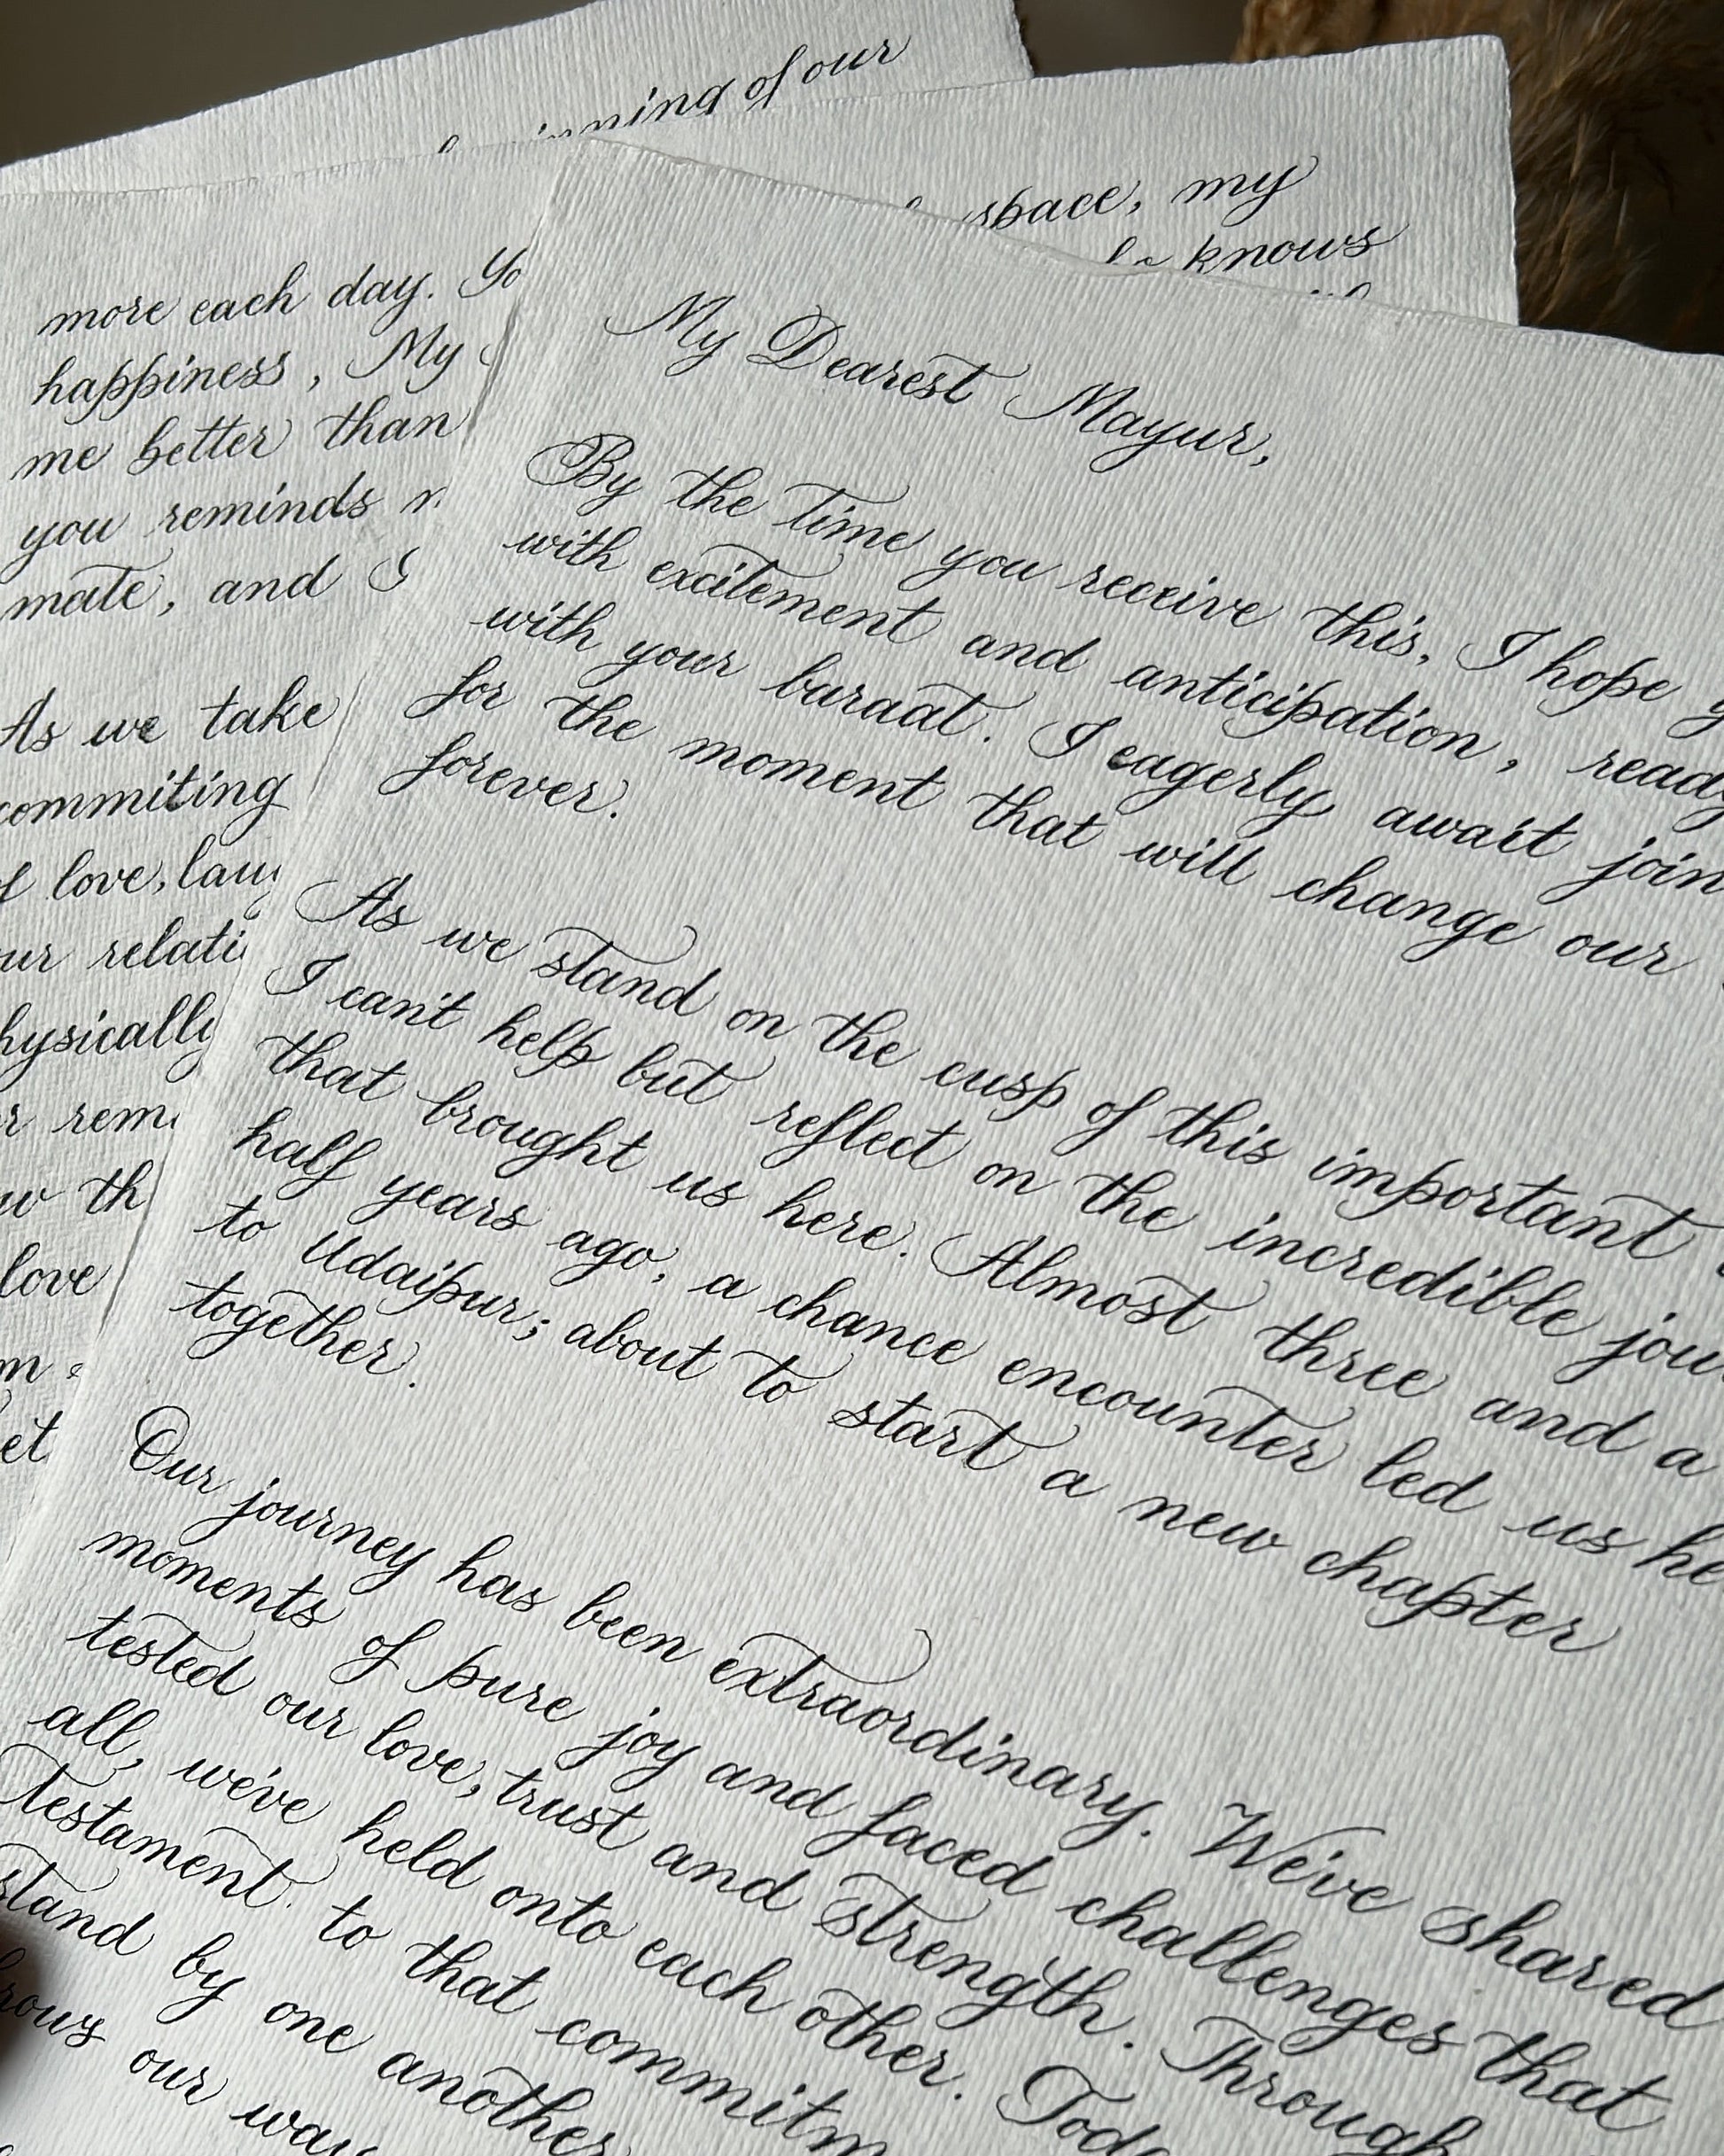 of our
space, my
knows
more each day.
happiness, My
me better than
you reminds
mate, and I
As we take
commiting
love, 
relati
hysically
rem
th
love
et
My Dearest Mayur,
By the time you receive this, I hope y
with excitement and anticipation, ready
with your baraat. I eagerly await join
for the moment that will change our
forever.
As we stand on the cusp of this important
I can't help but reflect on the incredible jou
that brought us here. Almost three and a
half years ago, a chance encounter led us he
to Udaipur; about to start a new chapter
together.
Our journey has been extraordinary. We've shared
moments of pure joy and faced challenges that
tested our love, trust and strength. Through
all, we've held onto each other. Toda
testament to that commitm
stand by one another
our way